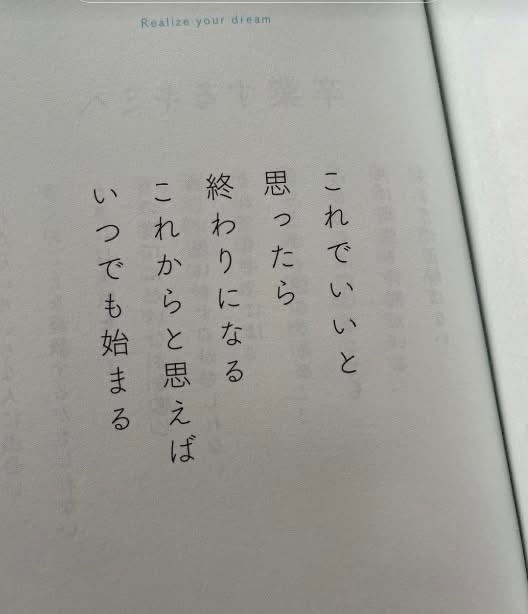 Realize your dream
これでいいと
思ったら
終わりになる
これからと思えば
いつでも始まる